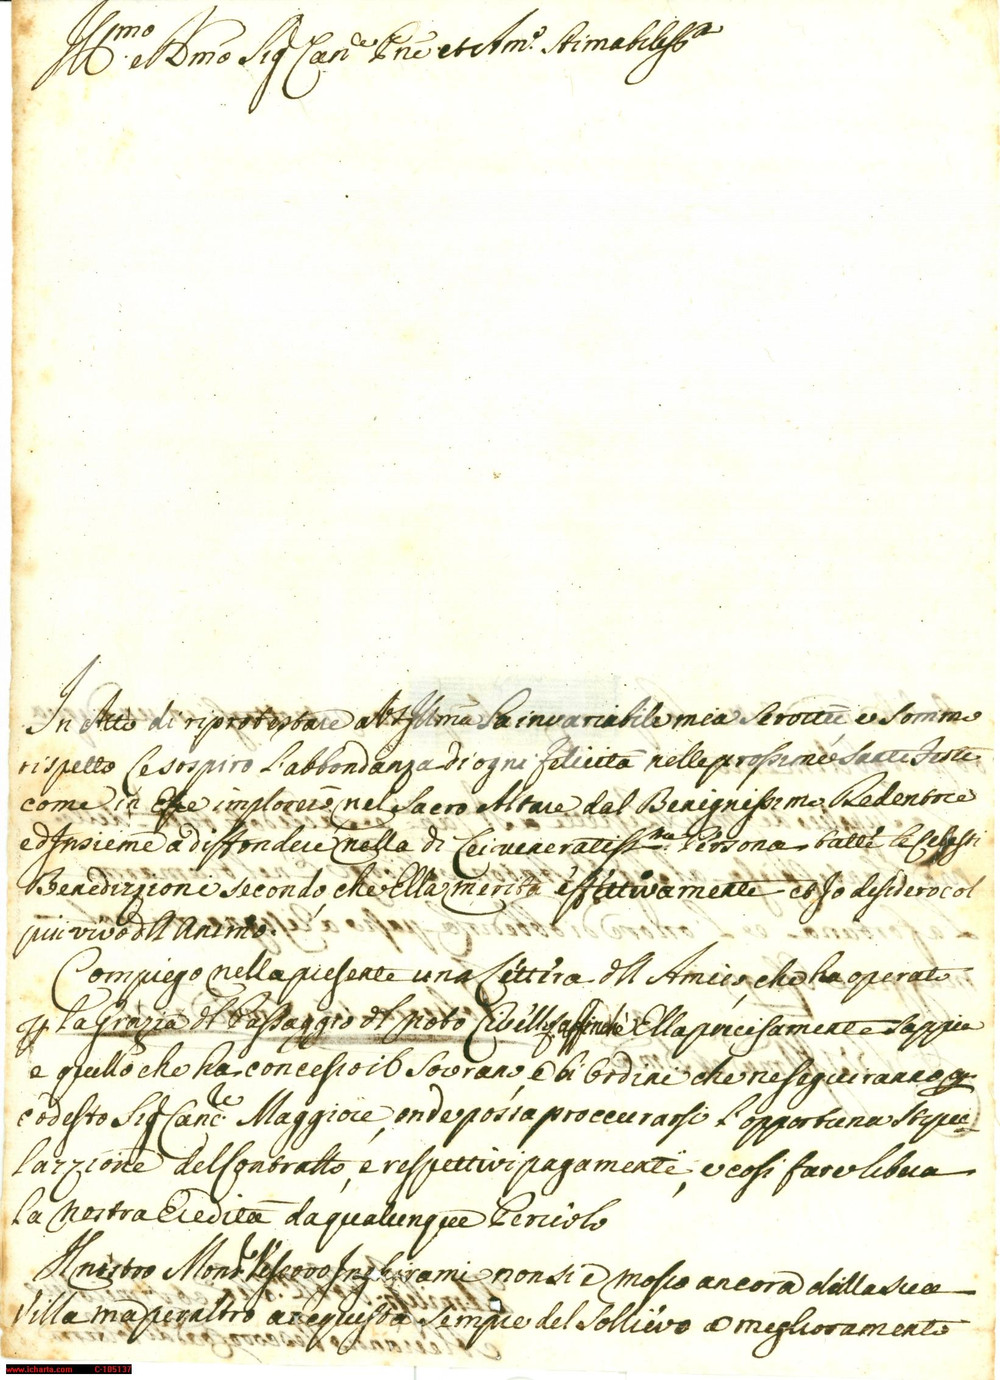 Ill.mo e Rmo Sig Can.e Pne et Am.o Stimatiliss.o
In Atto di riprotestare a V.S. Illma la invariabile mia Servitu e sommo
rispetto Le sospiro l'abbondanza di ogni felicità nelle prossime Sante Feste
come in Esse imploreró nel Sacro Altare dal Benignissimo Redentore
ed Insieme a diffondere nella di Lei veneratiss.ma Persona tutte le Celesti
Benedizzioni secondo, che Ella merita effettivamente et Io desidero col
piu vivo dell Animo.
Compiego nella presente una Lettera dell Amico, che ha operato
la Grazia del Passaggio del noto Livello, affinchè Ella precisamente sappia
e quello che ha concesso il Sovrano, e li Ordini che ne seguiranno
codesto Sig Canc.re Maggiore, onde possa proccurarsi l'opportuna stipu-
lazzione del Contratto, e respettivi pagamenti, e cosi fare libera
la nostra Eredità da qualunque Pericolo
Il nostro Mons.re Vescovo Inghirami non si è mosso ancora dalla sua
Villa ma per altro acquista sempre del Sollievo e meglioramento
www.icharta.com C-105137